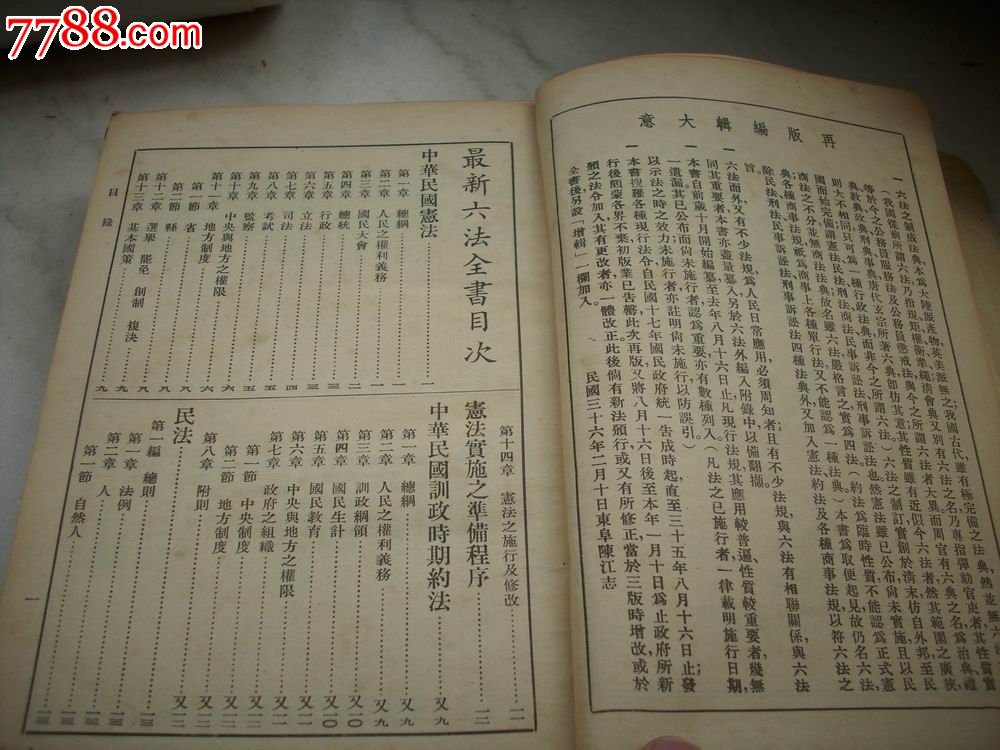 7788.com
再版編輯大意
一 六法之制成法典本爲大陸派產物英美派無之我國古代雖有極完備之法典然並無六法
(我國從前所謂六法乃指規矩權衡準繩清會典又別有六法之名乃專指彈劾官吏者其性質實
等於今之公務員服務法及公務員懲戒法與今之所謂六法者大異而周官有六典之名爲治典禮
典教典政典刑典事典唐代玄宗所著六典卽仿其意其性質雖有近似今六法者然其範圍之廣狹
則大不相同只可爲一種行政法典而非今之所謂六法)六法之制訂實創於清末仿自外邦至民
國而始完備所謂憲法民法刑法商法民事訴訟法刑事訴訟法也然憲法雖已公布尙未實施且以民
商法之不分並無商法法典故名雖六法嚴格言之實爲四法(約法爲臨時性質不能認爲正式憲
典各種商事法規祇爲商事上各種單行法又不能認爲一種法典)本書爲取便起見故仍名六法
除民法刑法民事訴訟法刑事訴訟法四種法典外又加入憲法約法及各種商事法規以符六法之
旨。
一 六法而外又有不少法規爲人民日常應用必須周知者且有不少法規與六法有相聯關係與六法
同其重要者本書亦盡量纂入另於六法外編入附錄中以備翻擷
一 本書自前歲十月開始編纂至去年八月十六日止凡現行法規其應用較普遍性質較重要者幾無
一遺漏其已公布而尙未施行者認爲重要亦有數種列入(凡法之已施行者一律載明施行日期
以示法之時之效力未施行者亦註明尙未施行以防誤引)
一 本書搜羅各種現行法令自民國十七年國民政府統一告成時起直至三十五年八月十六日止發
行後頗蒙各界不棄初版業已告罄此次再版又將八月十六日後至本年一月十日爲止政府所新
頒之法令加入其有更改者亦一體改正此後倘有新法頒行或又有所修正當於三版時增改或於
全書後另設「增輯」一欄加入。
民國三十六年二月十日東阜陳江志
最新六法全書目次
中華民國憲法 一
第一章 總綱 一
第二章 人民之權利義務 一
第三章 國民大會 二
第四章 總統 三
第五章 行政 三
第六章 立法 四
第七章 司法 四
第八章 考試 五
第九章 監察 五
第十章 中央與地方之權限 六
第十一章 地方制度 八
第一節 省 八
第二節 縣 八
第十二章 選舉 罷免 創制 複決 九
第十三章 基本國策 九
第十四章 憲法之施行及修改 一一
憲法實施之準備程序 一二
中華民國訓政時期約法 又九
第一章 總綱 又九
第二章 人民之權利義務 又九
第三章 訓政綱領 又一〇
第四章 國民生計 又一〇
第五章 國民教育 又一一
第六章 中央與地方之權限 又一一
第七章 政府之組織 又一一
第一節 中央制度 又一一
第二節 地方制度 又一二
第八章 附則 又一二
民法 一三
第一編 總則 一三
第一章 法例 一三
第二章 人 一三
第一節 自然人 一三
目錄
一